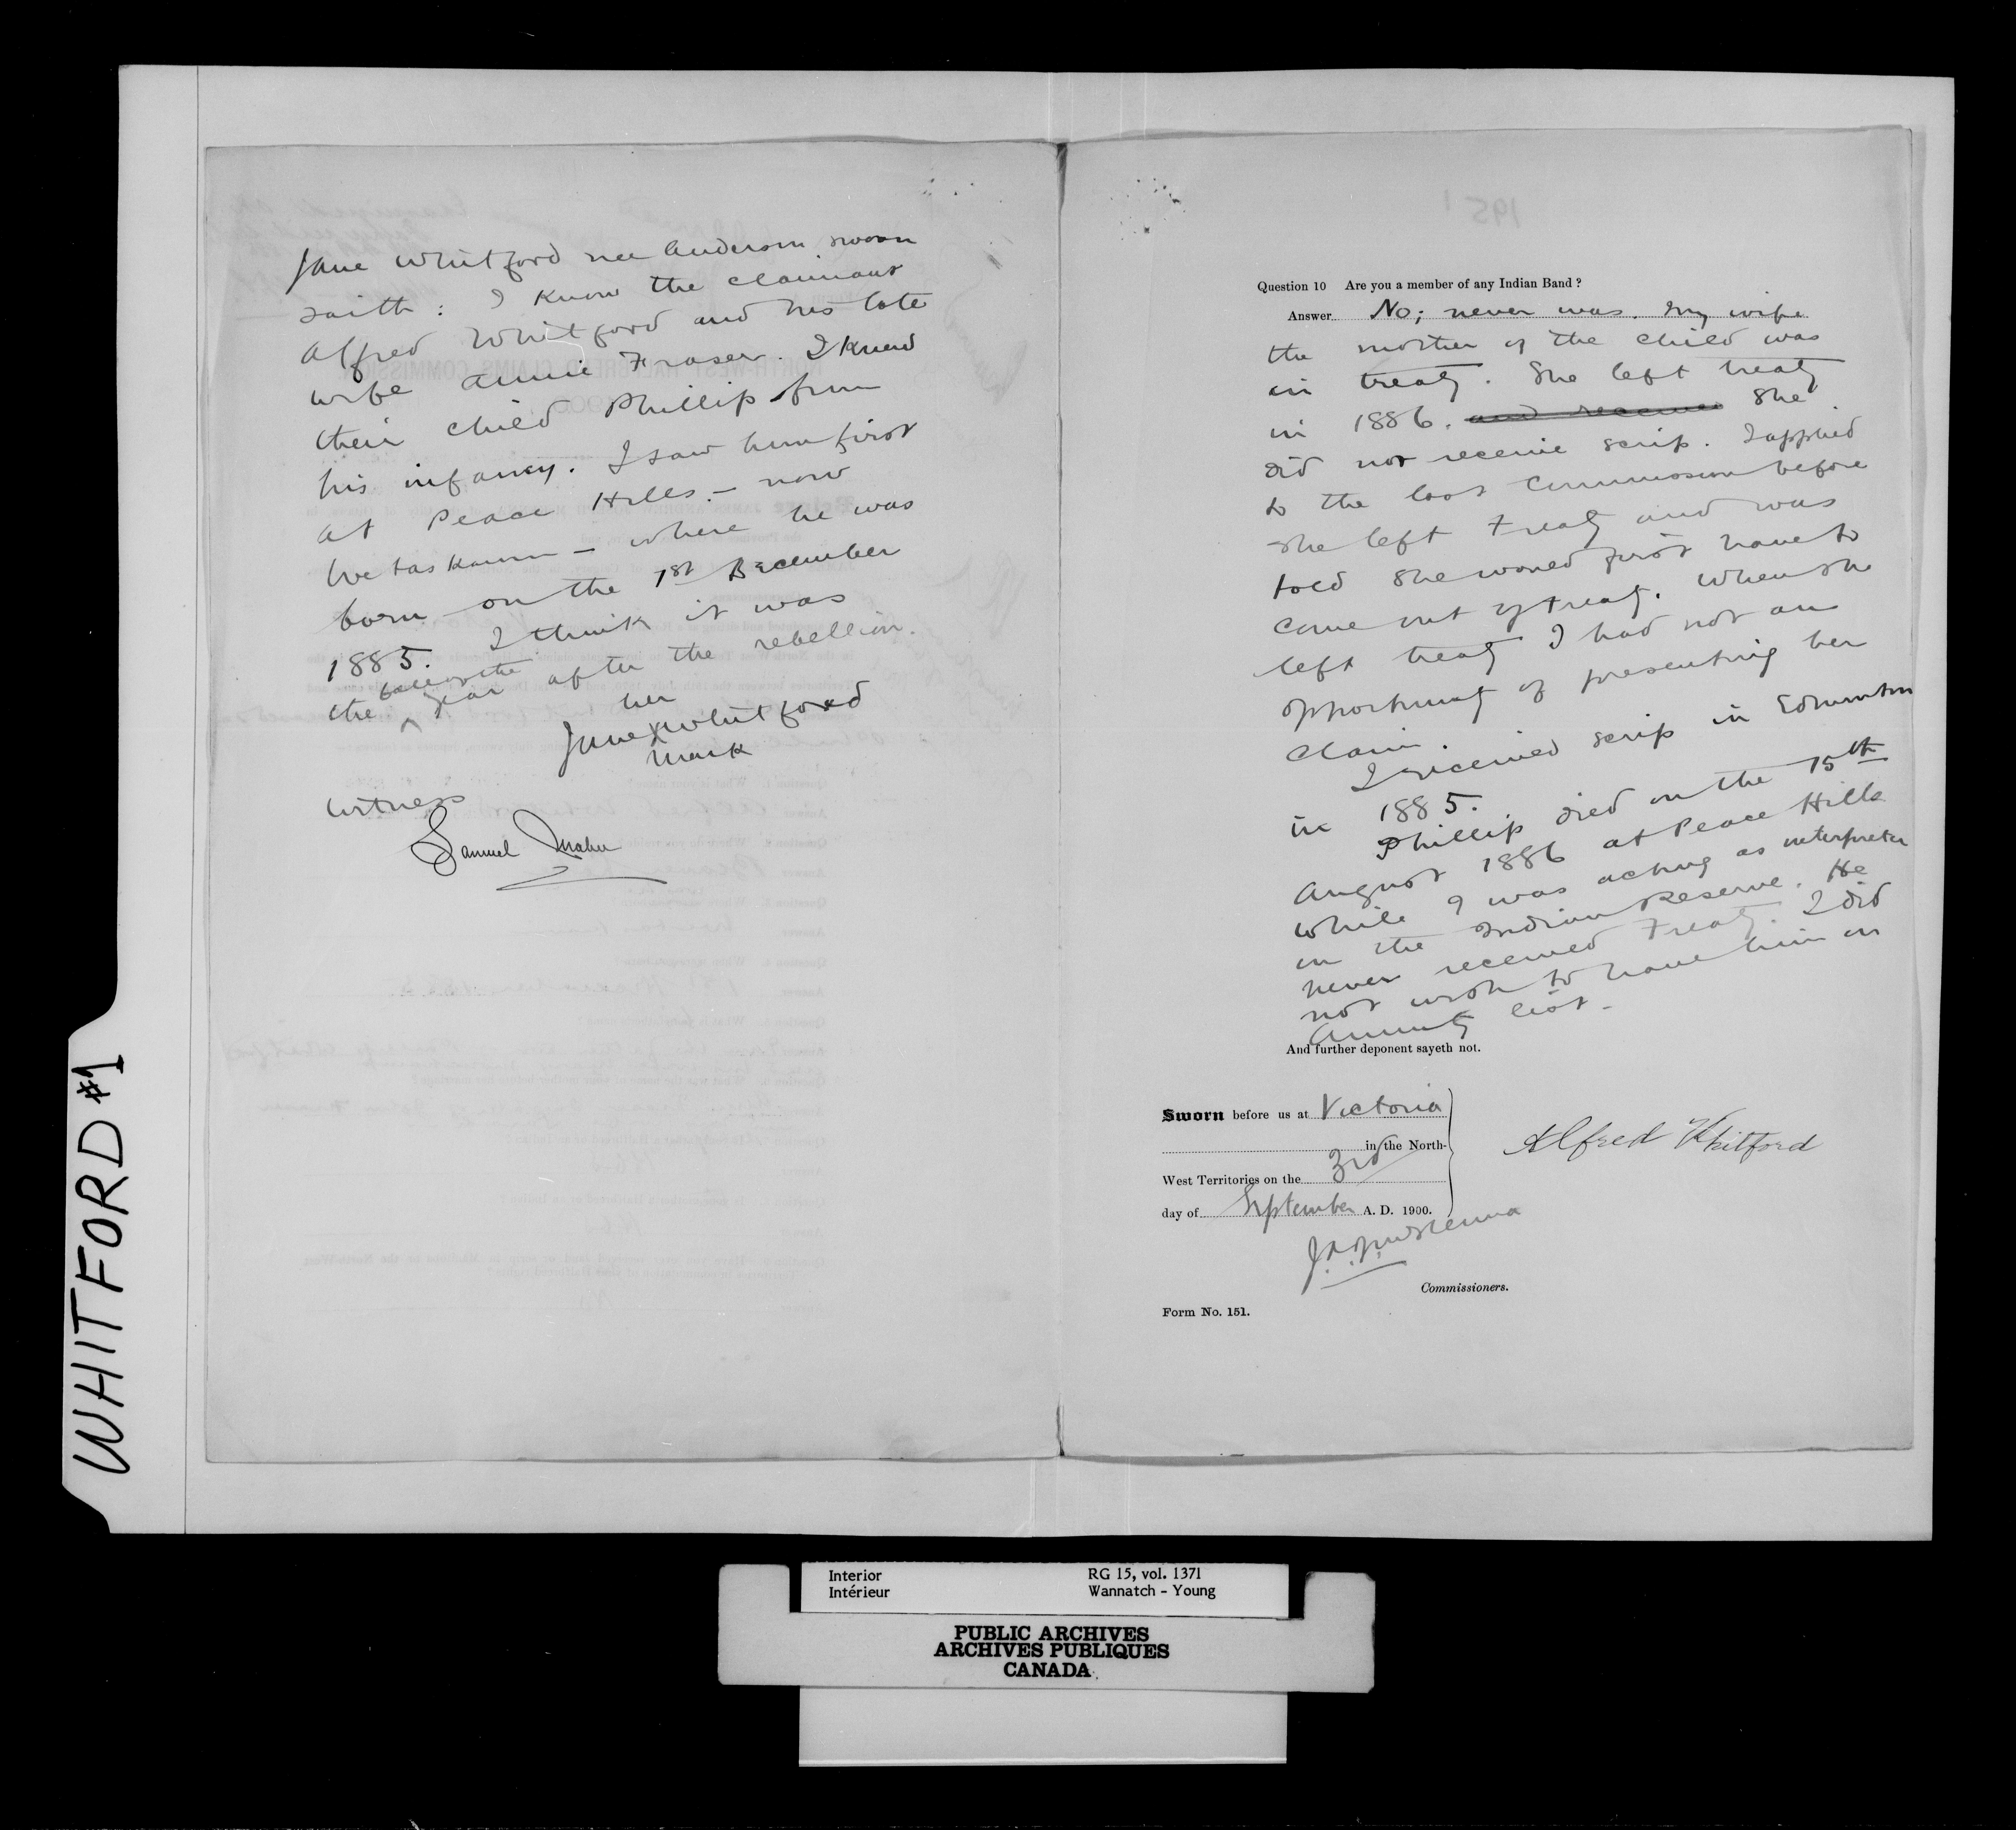 WHITFORD #1
Jane Whitford nee Anderson sworn
saith: I know the claimant
Alfred Whitford and his late
wife Annie Fraser. I knew
their child Phillip from
his infancy. I saw him first
at Peace Hills - now
Wetaskawin - where he was
born on the 1st December
1885. I think it was
the year after the rebellion.
her
Jane X Whitford
mark
Witness
Samuel
Question 10 Are you a member of any Indian Band?
Answer No; never was. My wife
the mother of the child was
in treaty. She left treaty
in 1886. and received She
did not receive scrip. I applied
to the last Commission before
she left treaty and was
told she would first have to
come out of treaty. When she
left treaty I had not an
opportunity of presenting her
claim.
I received scrip in Edmonton
in 1885.
Phillip died on the 15th
August 1886 at Peace Hills
while I was acting as interpreter
on the Indian Reserve. He
never received Treaty. I did
not wish to have him on
annuity list -
And further deponent sayeth not.
Sworn before us at Victoria
in the North-
West Territories on the 3rd
day of September A. D. 1900.
Alfred Whitford
J.A.J. McKenna
Commissioners.
Form No. 151.
Interior RG 15, vol. 1371
Intérieur Wannatch - Young
PUBLIC ARCHIVES
ARCHIVES PUBLIQUES
CANADA